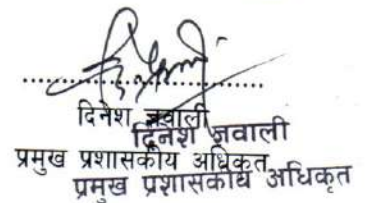 दिनेश ज्ञवाली
दिनेश ज्ञवाली
प्रमुख प्रशासकीय अधिकृत
प्रमुख प्रशासकीय अधिकृत